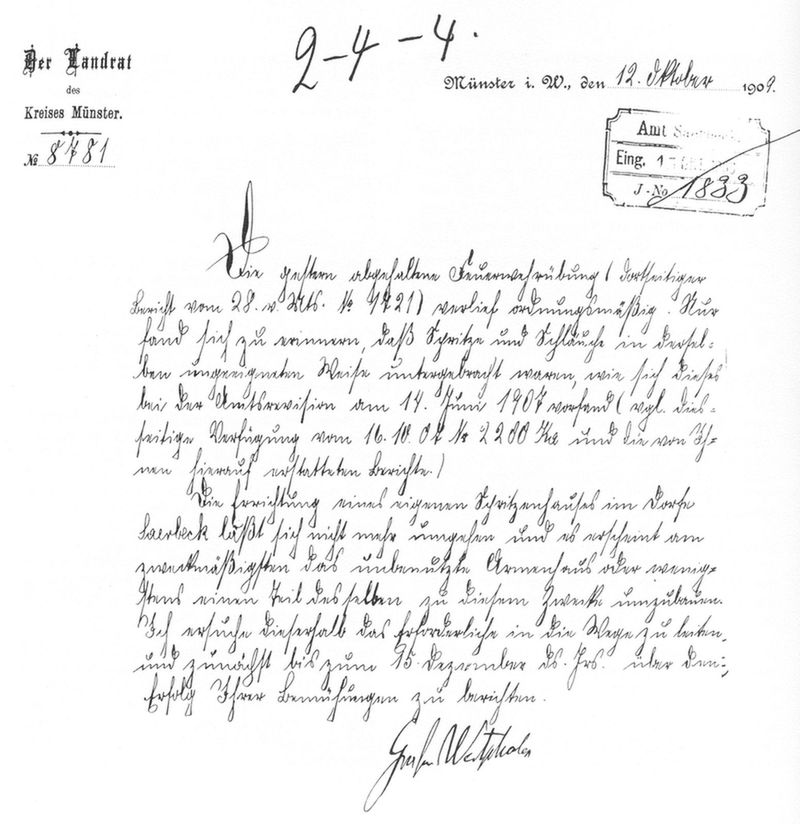 2-4-4.
Der Landrat
des
Kreises Münster.
№ 8781
Münster i. W., den 12. Oktober 1909.
Amt
Eing. 1
J-No 1833
Die gestern abgehaltene Feuerwehrübung (dortseitiger
Bericht vom 28. v. Mts. № 1721) verlief ordnungsmäßig. Nur
fand sich zu erinnern, daß Spritze und Schläuche in dersel-
ben ungeeigneten Weise untergebracht waren, wie sich dieses
bei der Amtsrevision am 14. Juni 1907 vorfand (vgl. dies-
seitige Verfügung vom 16.10.07 № 2200 und die von Ih-
nen hierauf erstatteten Berichte.)
Die Errichtung eines eigenen Spritzenhauses im Dorfe
Saerbeck läßt sich nicht mehr umgehen und es erscheint am
zweckmäßigsten das unbenutzte Armenhaus oder wenig-
stens einen Teil desselben zu diesem Zwecke umzubauen.
Ich ersuche dieserhalb das Erforderliche in die Wege zu leiten
und zunächst bis zum 15. Dezember ds. Jrs. über den
Erfolg Ihrer Bemühungen zu berichten.